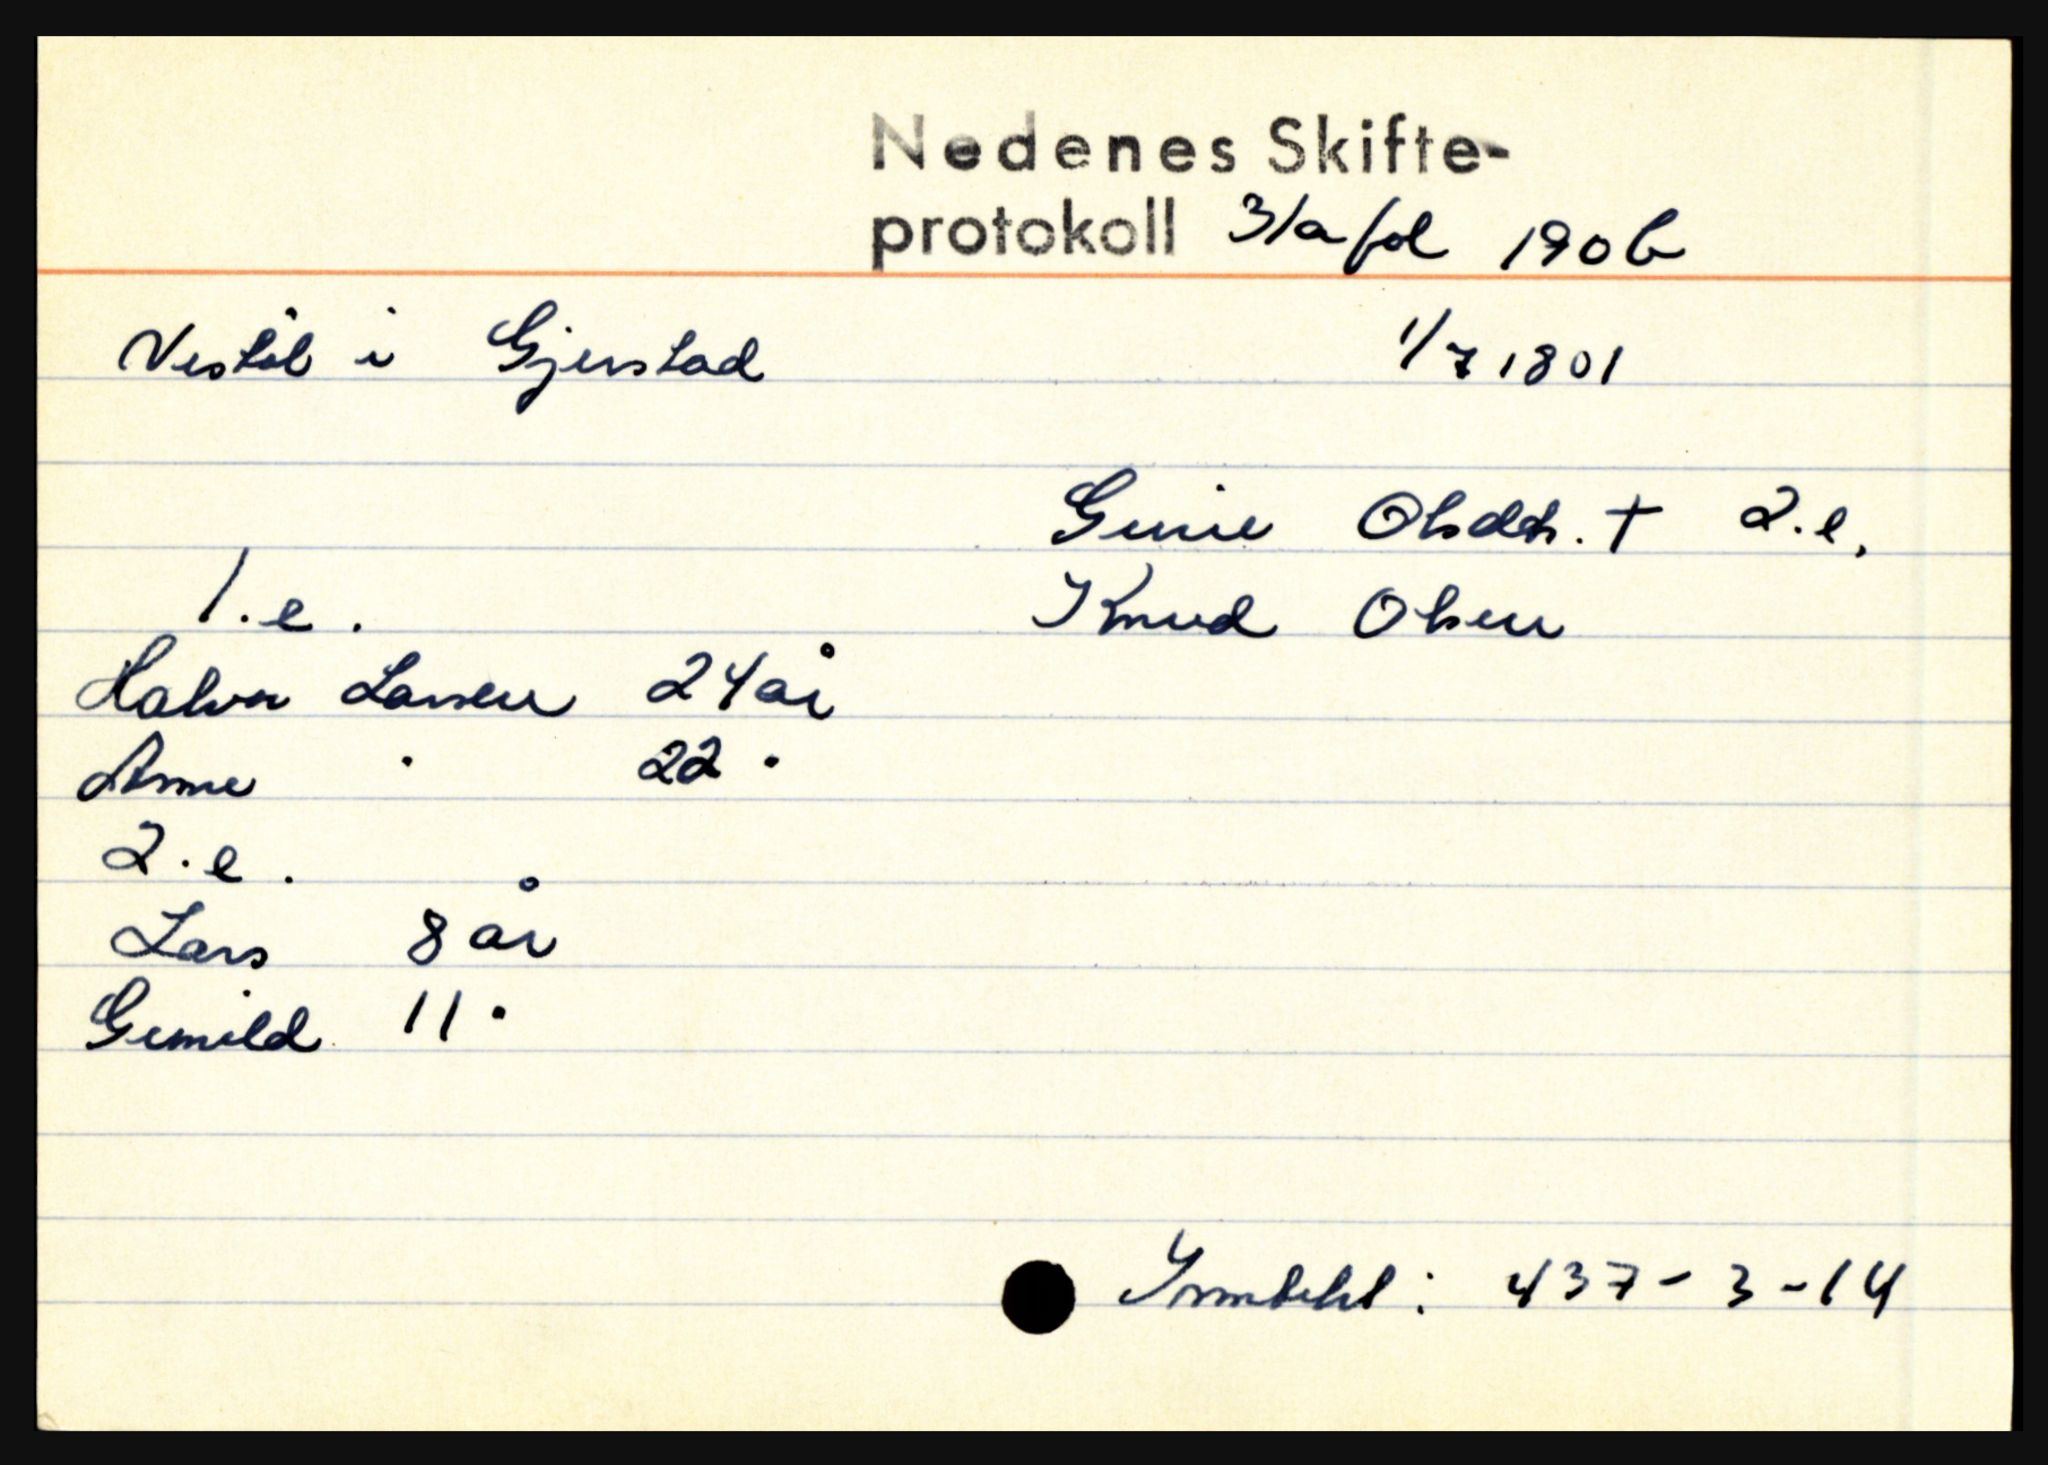 Nedenes Skifte-
protokoll 31a fol 190b
Vestøl i Gjerstad 1/7 1801
Gunie Olsdtr. + 2.e.
1.e. Knud Olsen
Halvor Larsen 24 år
Anne " 22 "
2.e.
Lars 8 år
Gunild 11 "
: 437-3-14